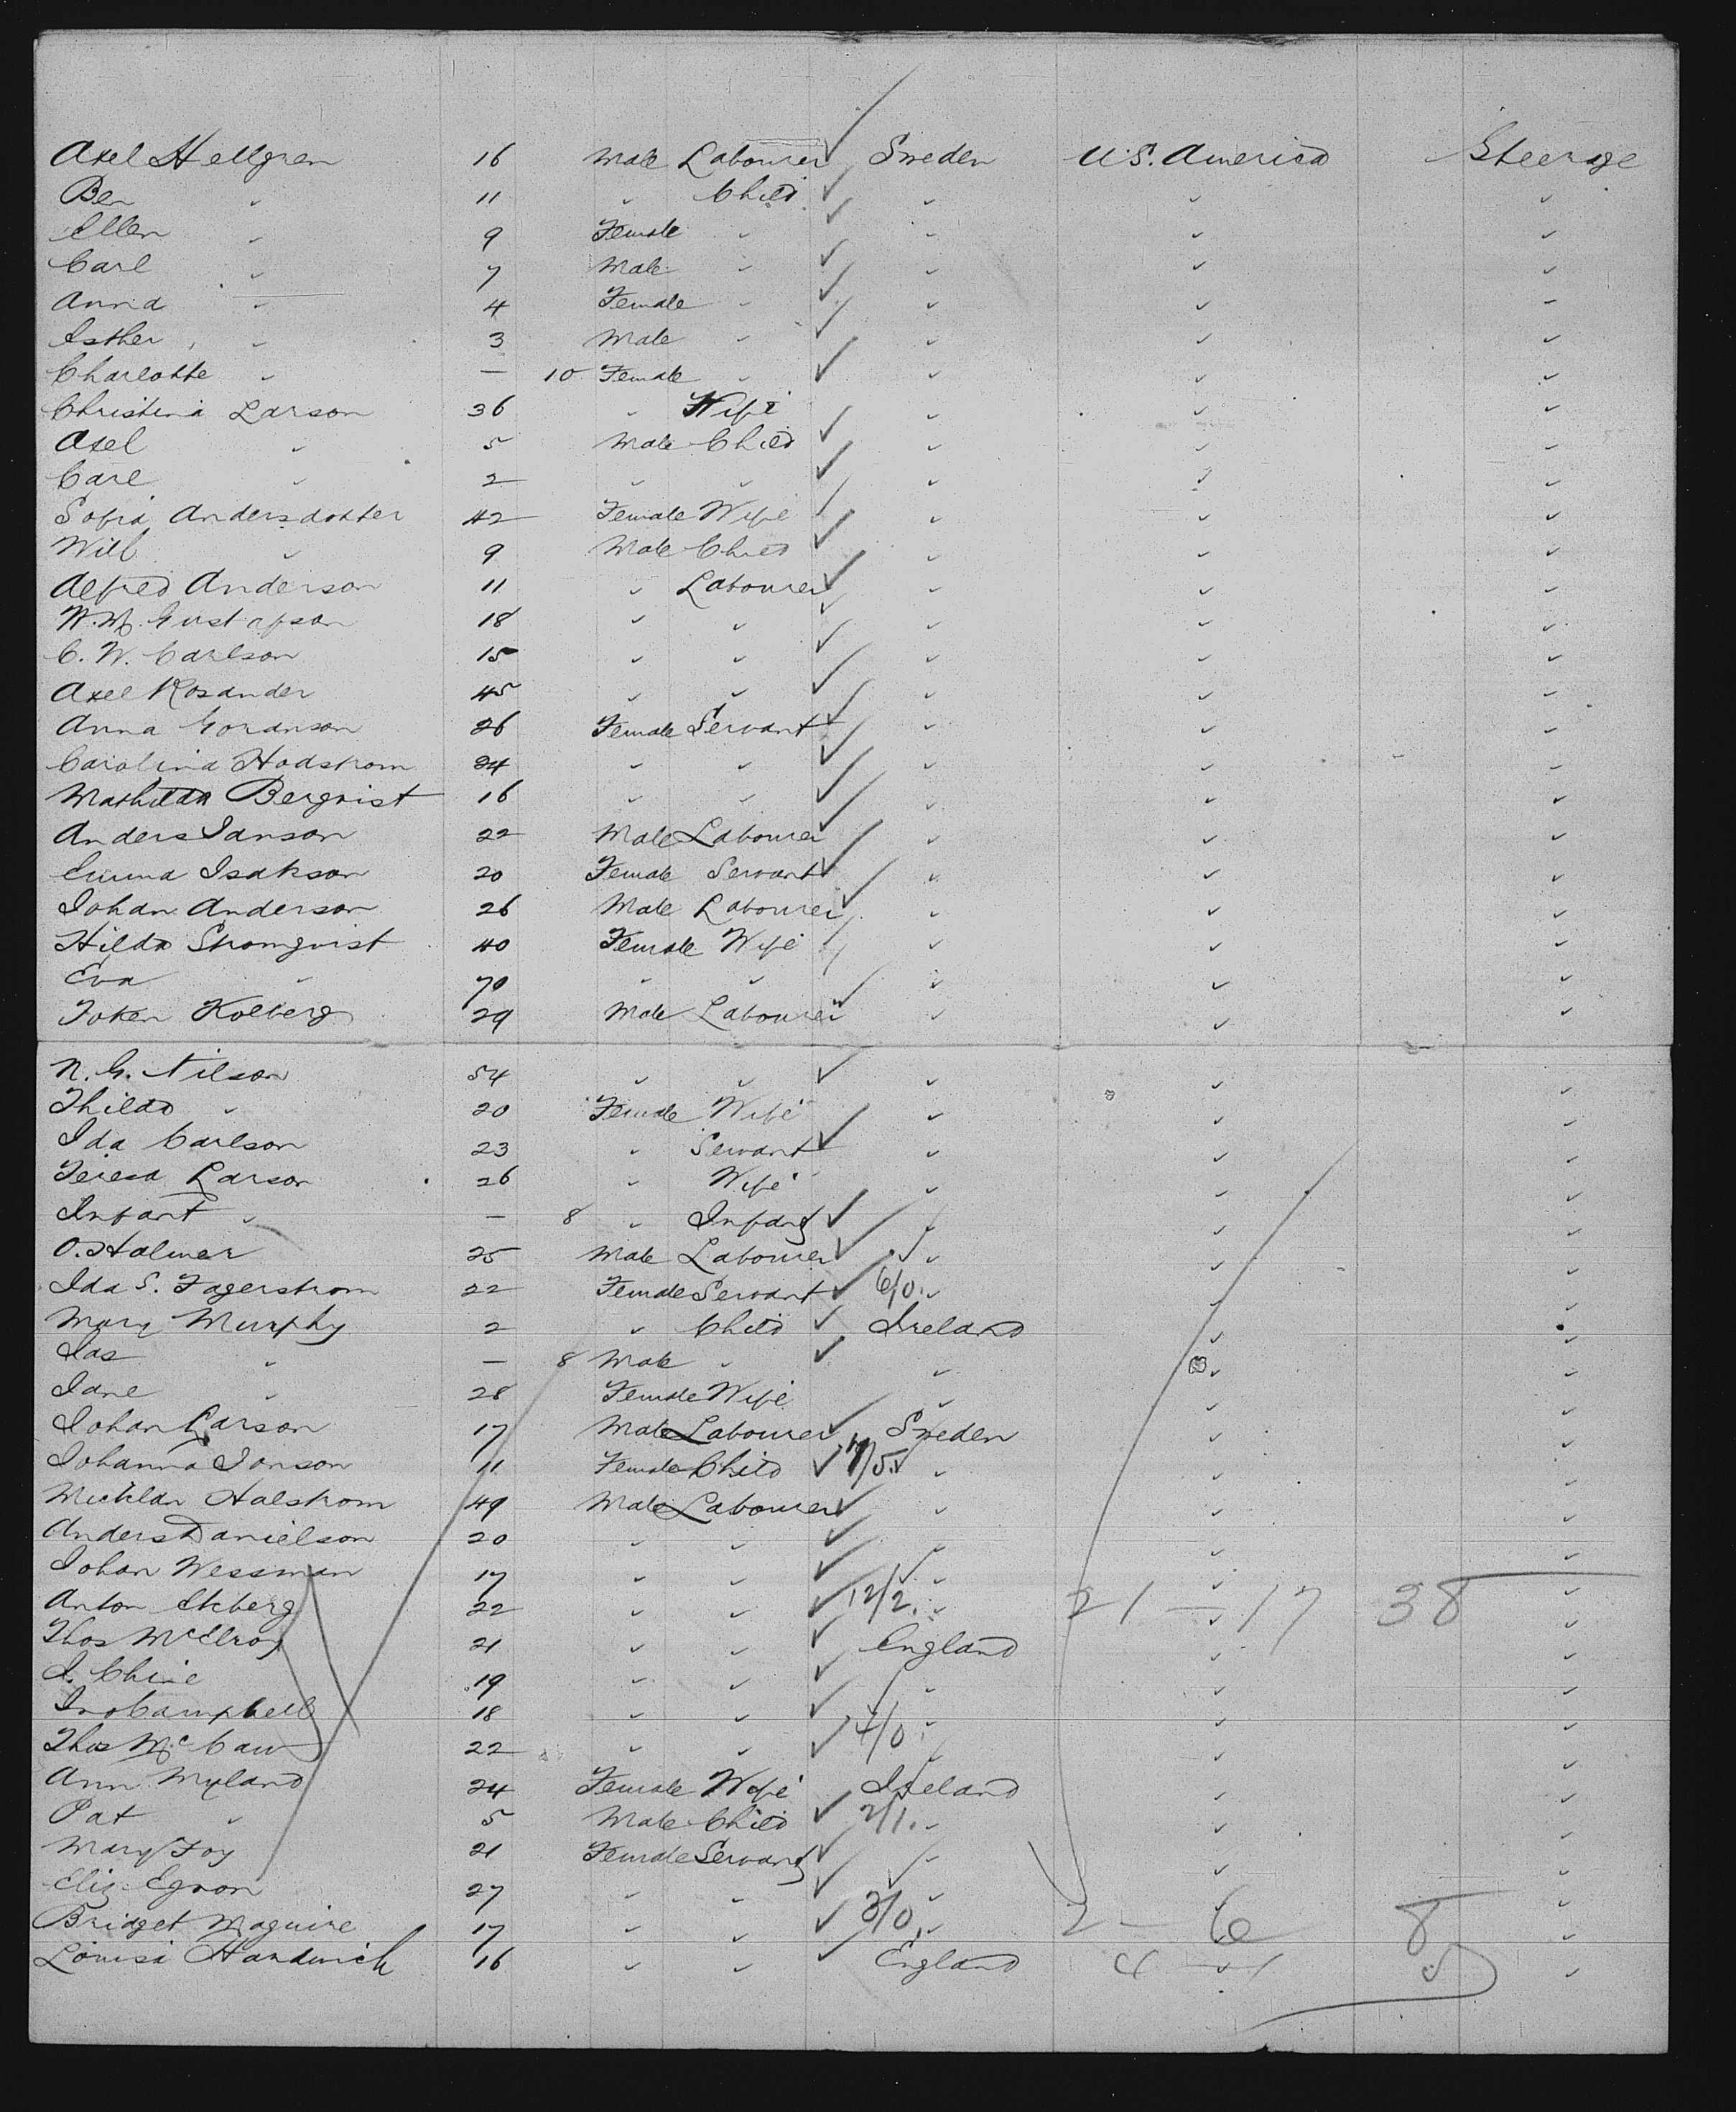 Axel Hellgren 16 Male Labourer Sweden U.S. America Steerage
Ben " 11 " Child " " "
Ellen " 9 Female " " " "
Carl " 7 Male " " " "
Anna " 4 Female " " " "
Esther " 3 Male " " " "
Charlotte " — 10 Female " " " "
Christina Larson 36 " Wife " " "
Axel " 5 Male Child " " "
Carl " 2 " " " " "
Sofia Andersdotter 42 Female Wife " " "
Will " 9 Male Child " " "
Alfred Anderson 11 " Labourer " " "
W.M. Gustafson 18 " " " " "
C. W. Carlson 15 " " " " "
Axel Rosander 45 " " " " "
Anna Goranson 26 Female Servant " " "
Carolina Hodstrom 24 " " " " "
Mathilda Bergvist 16 " " " " "
Anders Janson 22 Male Labourer " " "
Emma Isakson 20 Female Servant " " "
Johan Anderson 26 Male Labourer " " "
Hilda Stromqvist 40 Female Wife " " "
Eva " 70 " " " " "
Token Kolberg 29 Male Labourer " " "
N. G. Nilson 54 " " " " "
Thilda " 20 Female Wife " " "
Ida Carlson 23 " Servant " " "
Teresa Larson 26 " Wife " " "
Infant " — 8 " Infant " " "
O. Halmer 25 Male Labourer " " "
Ida S. Fagerstrom 22 Female Servant 6/0. " " "
Mary Murphy 2 " Child Ireland " "
Jas " — 8 Male " " " "
Jane " 28 Female Wife " " "
Johan Larson 17 Male Labourer Sweden " "
Johanna Jonson 11 Female Child 7/5. " " "
Mickilda Halstrom 49 Male Labourer " " "
Anders Danielson 20 " " " " "
Johan Wessman 17 " " " " "
Anton Ekberg 22 " " 12/2. " 21 — 17 38 "
Thos McElroy 21 " " England " "
J. Chine 19 " " " " "
Jno Campbell 18 " " " " "
Thos McCaw 22 " " 4/0. " "
Ann Myland 24 Female Wife Ireland " "
Pat " 5 Male Child 2/1. " " "
Mary Foy 21 Female Servant " " "
Eliz Egnon 27 " " " " "
Bridget Maguire 17 " " 3/0. " 2 — 6 8 "
Louisa Hardwick 16 " " England 4 — 1 5 "